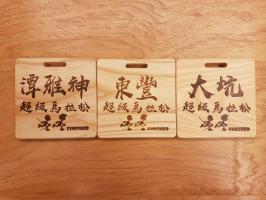 潭雅神
超級馬拉松
FINISHER
東豐
超級馬拉松
FINISHER
大坑
超級馬拉松
FINISHER